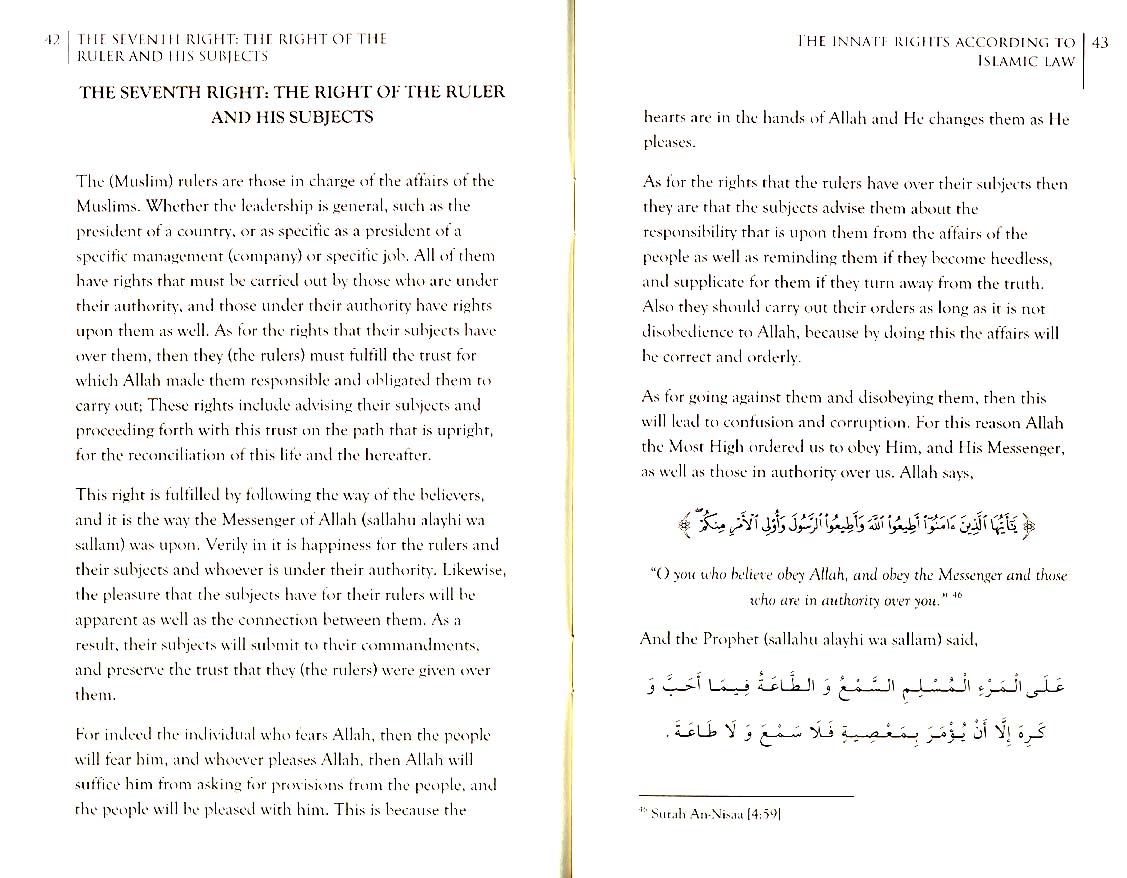 42 THE SEVENTH RIGHT: THE RIGHT OF THE
RULER AND HIS SUBJECTS
THE SEVENTH RIGHT: THE RIGHT OF THE RULER
AND HIS SUBJECTS
The (Muslim) rulers are those in charge of the affairs of the
Muslims. Whether the leadership is general, such as the
president of a country, or as specific as a president of a
specific management (company) or specific job. All of them
have rights that must be carried out by those who are under
their authority, and those under their authority have rights
upon them as well. As for the rights that their subjects have
over them, then they (the rulers) must fulfill the trust for
which Allah made them responsible and obligated them to
carry out; These rights include advising their subjects and
proceeding forth with this trust on the path that is upright,
for the reconciliation of this life and the hereafter.
This right is fulfilled by following the way of the believers,
and it is the way the Messenger of Allah (sallahu alayhi wa
sallam) was upon. Verily in it is happiness for the rulers and
their subjects and whoever is under their authority. Likewise,
the pleasure that the subjects have for their rulers will be
apparent as well as the connection between them. As a
result, their subjects will submit to their commandments,
and preserve the trust that they (the rulers) were given over
them.
For indeed the individual who fears Allah, then the people
will fear him, and whoever pleases Allah, then Allah will
suffice him from asking for provisions from the people, and
the people will be pleased with him. This is because the
THE INNATE RIGHTS ACCORDING TO 43
ISLAMIC LAW
hearts are in the hands of Allah and He changes them as He
pleases.
As for the rights that the rulers have over their subjects then
they are that the subjects advise them about the
responsibility that is upon them from the affairs of the
people as well as reminding them if they become heedless,
and supplicate for them if they turn away from the truth.
Also they should carry out their orders as long as it is not
disobedience to Allah, because by doing this the affairs will
be correct and orderly.
As for going against them and disobeying them, then this
will lead to confusion and corruption. For this reason Allah
the Most High ordered us to obey Him, and His Messenger,
as well as those in authority over us. Allah says,
﴿ يَٰٓأَيُّهَا ٱلَّذِينَ ءَامَنُوٓا۟ أَطِيعُوا۟ ٱللَّهَ وَأَطِيعُوا۟ ٱلرَّسُولَ وَأُو۟لِى ٱلْأَمْرِ مِنكُمْ ۖ ﴾
“O you who believe obey Allah, and obey the Messenger and those
who are in authority over you.” 46
And the Prophet (sallahu alayhi wa sallam) said,
عَلَى الْمَرْءِ الْمُسْلِمِ السَّمْعُ وَ الطَّاعَةُ فِيمَا أَحَبَّ وَ
كَرِهَ إِلَّا أَنْ يُؤْمَرَ بِمَعْصِيةٍ فَلَا سَمْعَ وَ لَا طَاعَةَ .
46 Surah An-Nisaa [4:59]